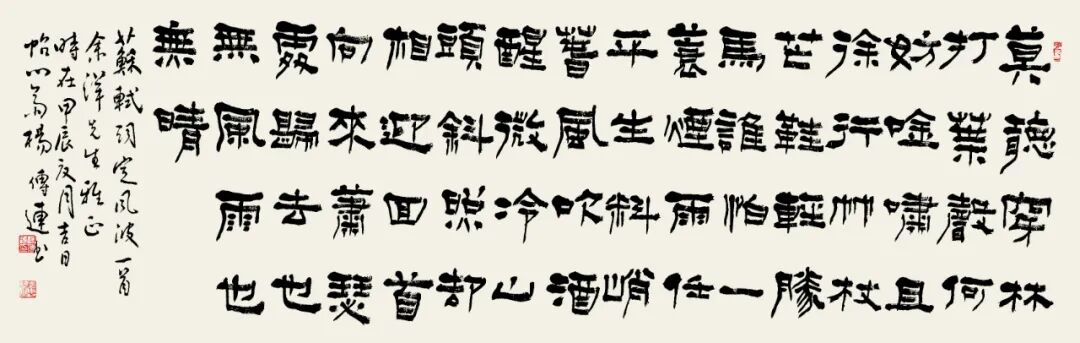 莫聽穿林
打葉聲何
妨唫嘯且
徐行竹杖
芒鞋輕勝
馬誰怕一
蓑煙雨任
平生料峭
萅風吹酒
醒微冷山
頭斜照却
相迎回首
向來蕭瑟
處歸去也
無風雨也
無晴
蘇軾詞定風波一首
余洋先生雅正
時在甲辰夏月吉日
楊傳連书